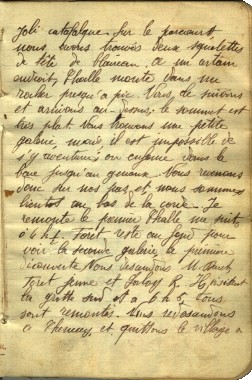 joli catafalque. Sur le parcours
nous avons trouvé deux squelettes
de tête de blaireau. A un certain
endroit Challe monte dans un
rocher presque à pic. Nous le suivons
et arrivons au dessus; le sommet est
très plat. Nous trouvons une petite
galerie, mais il est impossible de
s'y aventurer on enfonce dans la
boue jusqu'au genoux. Nous revenons
donc sur nos pas et nous sommes
bientôt au bas de la corde. Je
remonte le premier Challe me suit
à 4 h ½. Foret reste au fond pour
voir la seconde galerie, la première
découverte. Nous descendons M.
Foret Jeune et R. H. visitent
la grotte sud et à 6 h ½ tous
sont remontés. Nous redescendons
à et quittons le village à